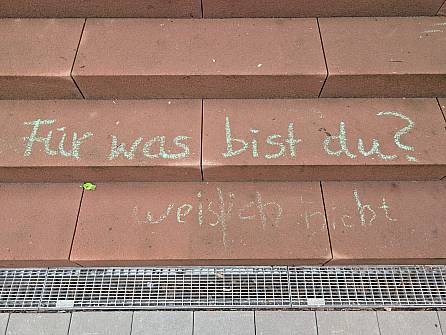 Für was bist du?
weislich nicht